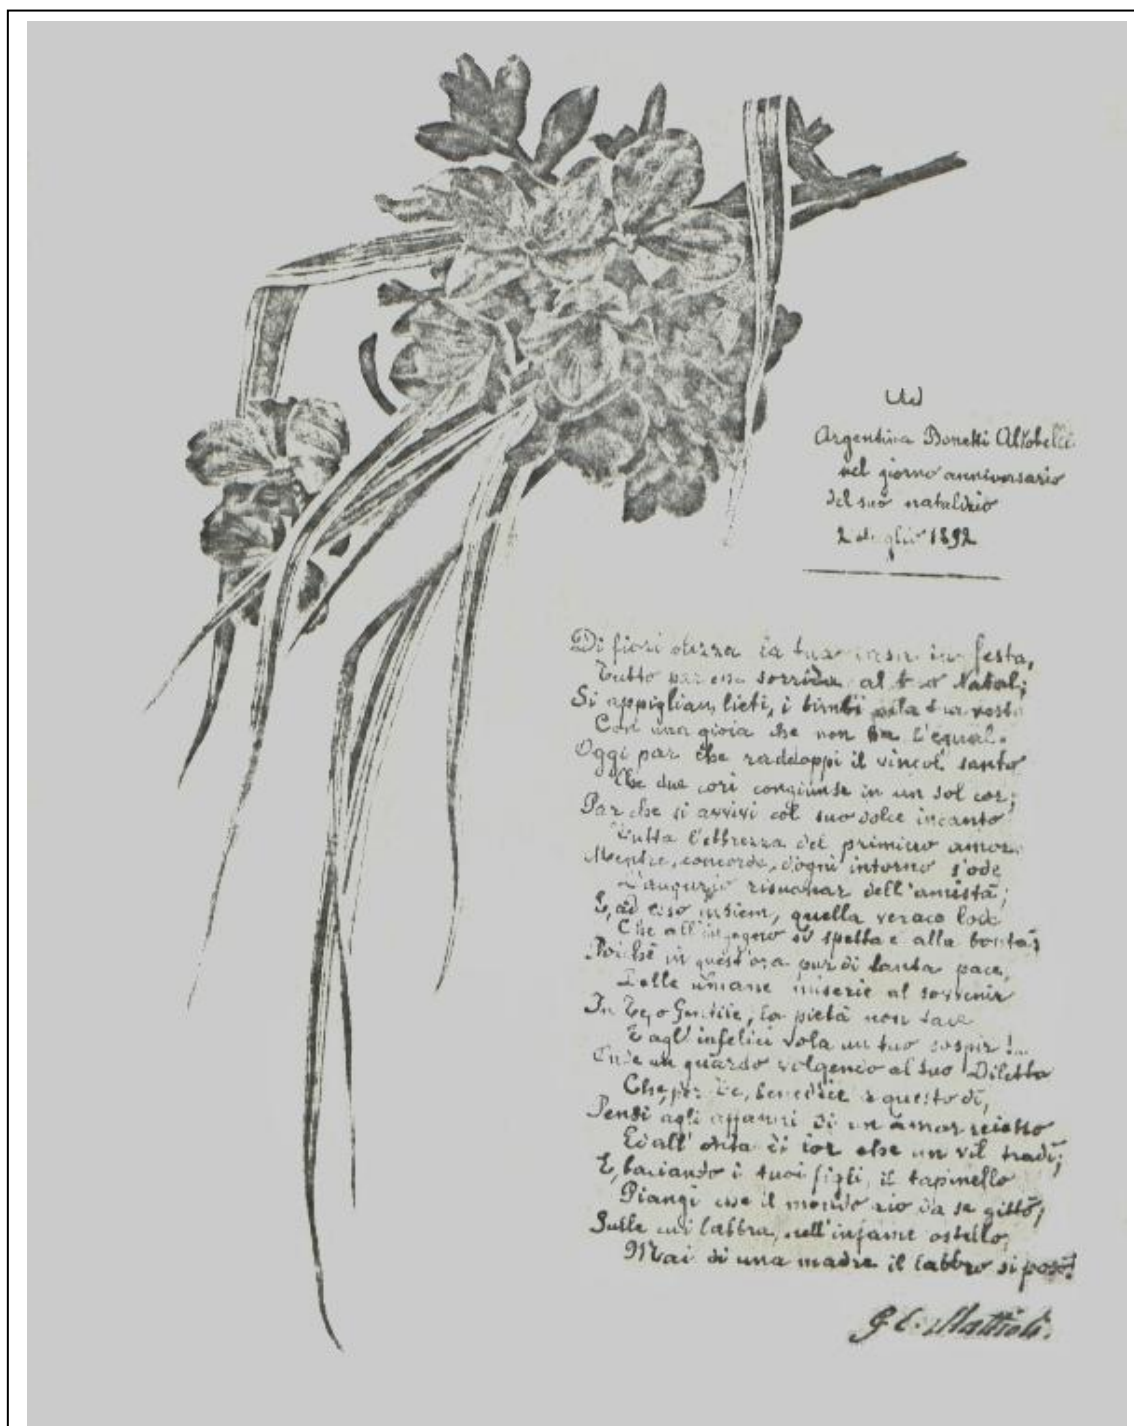 Ad
Argentina Bonetti Altobelli
nel giorno anniversario
del suo natalizio
2 luglio 1892
Di fiori olezza la tua casa in festa,
Tutto par che sorrida al tuo Natal;
Si appiglian, lieti, i bimbi alla tua vesta
Con una gioia che non ha l'egual.
Oggi par che raddoppi il vincol santo
Che due cori congiunse in un sol cor;
Par che si avvivi col suo dolce incanto
Tutta l'ebbrezza del primiero amor.
Mentre, concorde, d'ogni intorno s'ode
L'augurio risuonar dell'amistà;
E, ad esso insiem, quella verace lode
Che all'ingegno si spetta e alla bontà;
Poichè in quest'ora pur di tanta pace,
Delle umane miserie al sovvenir
In Te, o Gentile, la pietà non tace
E agl'infelici vola un tuo sospir!...
un guardo volgendo al tuo Diletto
Che, per Te, benedice a questo dì,
Pensi agli affanni di un amor reietto
Ed all'onta di cor che un vil tradì;
E, baciando i tuoi figli, il tapinello
Piangi che il mondo rio da se gittò;
Sulle cui labbra, nell'infame ostello,
Mai di una madre il labbro si posò!
G. C. Mattioli.